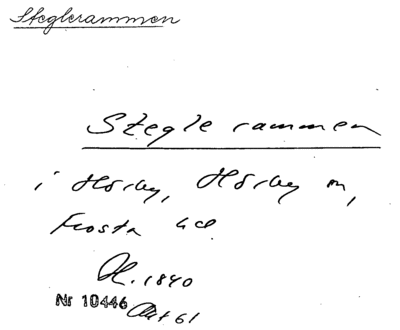 Steglerammen
Stegle rammen
i Hörby, Hörby sn,
Frosta hd
1840
Nr 10446 Akt 61